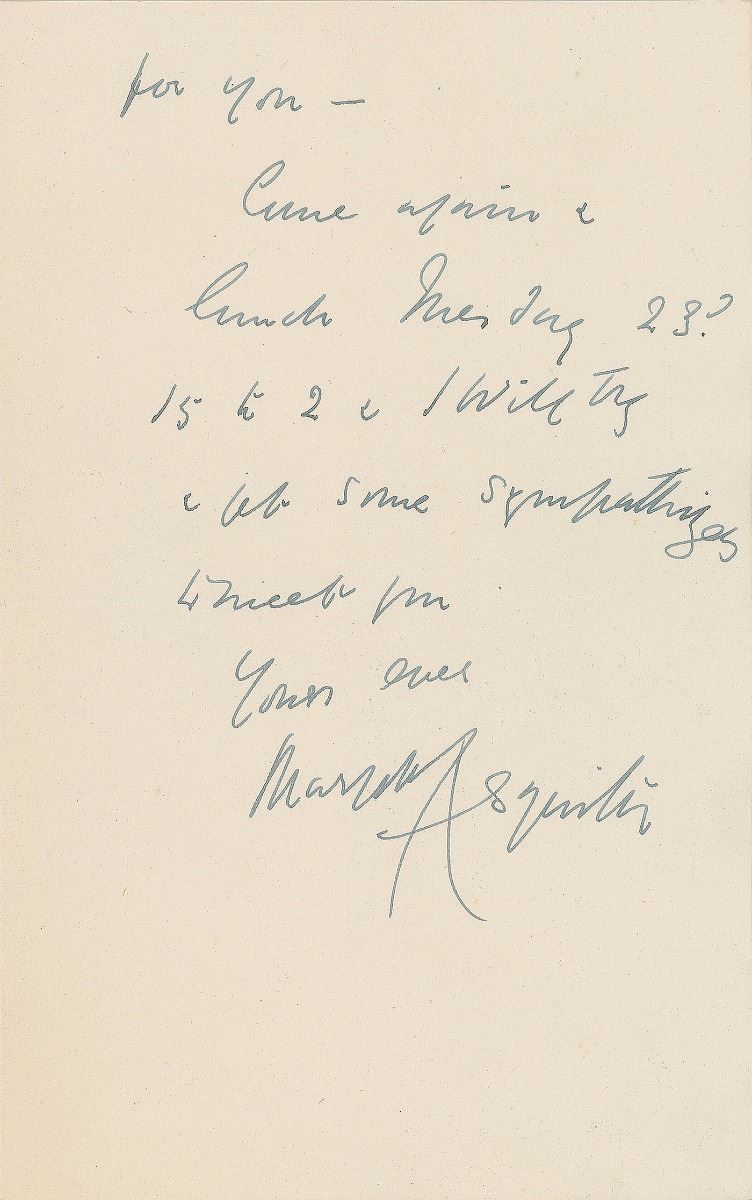 for you —
Come again &
lunch Tuesday 23?
15 to 2 & I will try
& get some sympathizers
to meet you
Yours ever
Margot Asquith